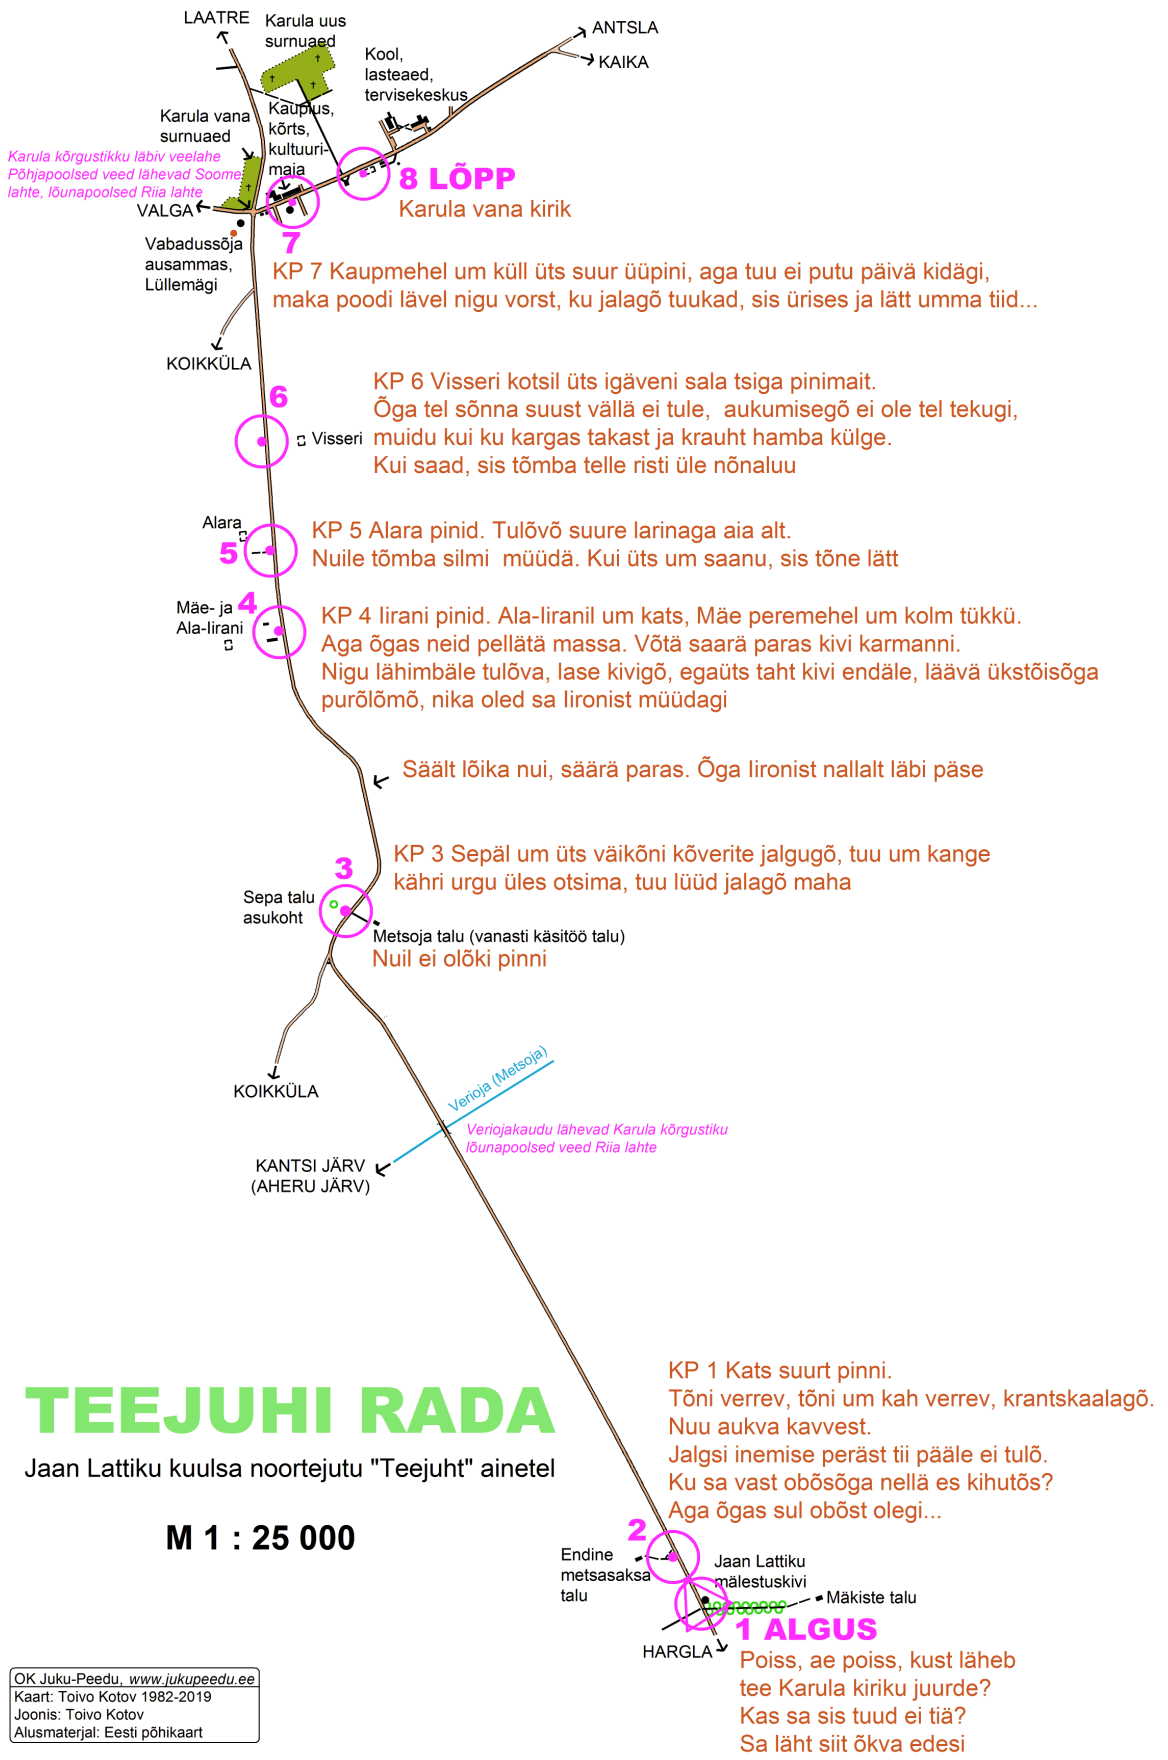 LAATRE
Karula uus
surnuaed
ANTSLA
KAIKA
Kool,
lasteaed,
tervisekeskus
Karula vana
surnuaed
Kauplus,
kõrts,
kultuuri-
maja
Karula kõrgustikku läbiv veelahe
Põhjapoolsed veed lähevad Soome
lahte, lõunapoolsed Riia lahte
VALGA
8 LÕPP
Karula vana kirik
7
Vabadussõja
ausammas,
Lüllemägi
KP 7 Kaupmehel um küll üts suur üüpini, aga tuu ei putu päivä kidägi,
maka poodi lävel nigu vorst, ku jalagõ tuukad, sis ürises ja lätt umma tiid...
KOIKKÜLA
6
KP 6 Visseri kotsil üts igäveni sala tsiga pinimait.
Õga tel sõnna suust vällä ei tule, aukumisegõ ei ole tel tekugi,
muidu kui ku kargas takast ja krauht hamba külge.
Kui saad, sis tõmba telle risti üle nõnaluu
Visseri
Alara
5
KP 5 Alara pinid. Tulõvõ suure larinaga aia alt.
Nuile tõmba silmi müüdä. Kui üts um saanu, sis tõne lätt
4
Mäe- ja
Ala-Iirani
KP 4 Iirani pinid. Ala-Iiranil um kats, Mäe peremehel um kolm tükkü.
Aga õgas neid pellätä massa. Võtä saarä paras kivi karmanni.
Nigu lähimbäle tulõva, lase kivigõ, egaüts taht kivi endäle, läävä ükstõisõga
purõlõmõ, nika oled sa Iironist müüdagi
Säält lõika nui, säärä paras. Õga Iironist nallalt läbi päse
3
KP 3 Sepäl um üts väikõni kõverite jalgugõ, tuu um kange
kähri urgu üles otsima, tuu lüüd jalagõ maha
Sepa talu
asukoht
Metsoja talu (vanasti käsitöö talu)
Nuil ei olõki pinni
KOIKKÜLA
Verioja (Metsoja)
Veriojakaudu lähevad Karula kõrgustiku
lõunapoolsed veed Riia lahte
KANTSI JÄRV
(AHERU JÄRV)
TEEJUHI RADA
Jaan Lattiku kuulsa noortejutu "Teejuht" ainetel
M 1 : 25 000
KP 1 Kats suurt pinni.
Tõni verrev, tõni um kah verrev, krantskaalagõ.
Nuu aukva kavvest.
Jalgsi inemise peräst tii pääle ei tulõ.
Ku sa vast obõsõga nellä es kihutõs?
Aga õgas sul obõst olegi...
2
Endine
metsasaksa
talu
Jaan Lattiku
mälestuskivi
Mäkiste talu
1 ALGUS
HARGLA
Poiss, ae poiss, kust läheb
tee Karula kiriku juurde?
Kas sa sis tuud ei tiä?
Sa läht siit õkva edesi
OK Juku-Peedu, www.jukupeedu.ee
Kaart: Toivo Kotov 1982-2019
Joonis: Toivo Kotov
Alusmaterjal: Eesti põhikaart